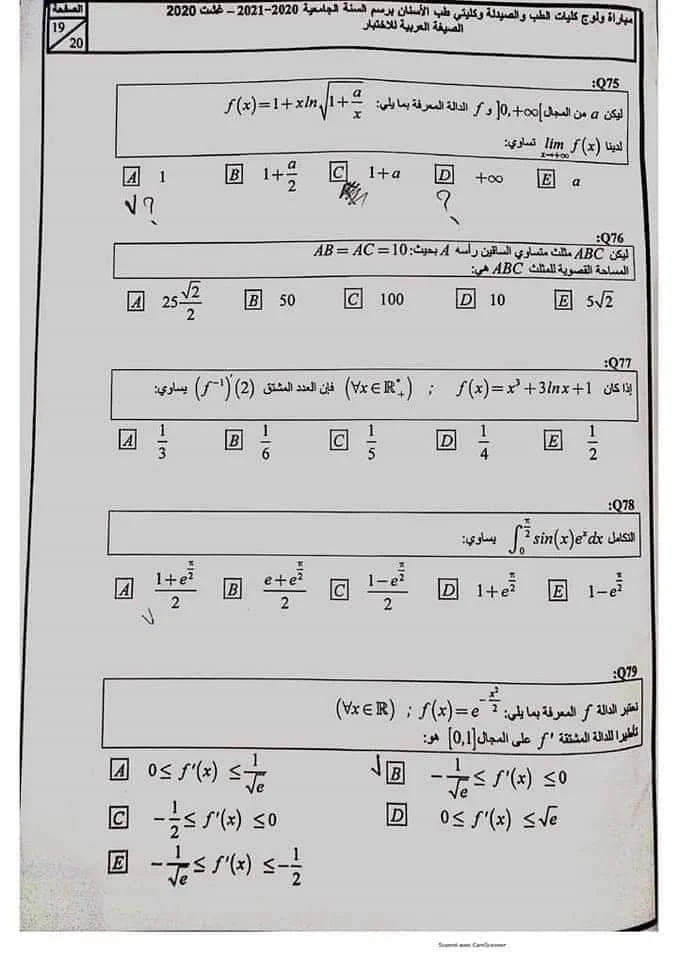 مباراة ولوج كليات الطب والصيدلة وكليتي طب الأسنان برسم السنة الجامعية 2020-2021 – غشت 2020
الصيغة العربية للاختبار
الصفحة
19
20
Q75:
ليكن a من المجال ]0,+∞[ و f الدالة المعرفة بما يلي: f(x)=1+xln√(1+a/x)
لدينا lim f(x) x→+∞ تساوي:
A 1 B 1+a/2 C 1+a D +∞ E a
√ ? ?
Q76:
ليكن ABC مثلث متساوي الساقين رأسه A بحيث: AB = AC = 10
المساحة القصوية للمثلث ABC هي:
A 25 √2/2 B 50 C 100 D 10 E 5√2
Q77:
إذا كان f(x)=x³+3lnx+1 ; (∀x∈ℝ*₊) فإن العدد المشتق (f⁻¹)′(2) يساوي:
A 1/3 B 1/6 C 1/5 D 1/4 E 1/2
Q78:
التكامل ∫₀^(π/2) sin(x)eˣdx يساوي:
A (1+e^(π/2))/2 B (e+e^(π/2))/2 C (1−e^(π/2))/2 D 1+e^(π/2) E 1−e^(π/2)
√
Q79:
نعتبر الدالة f المعرفة بما يلي: f(x)=e^(−x²/2) ; (∀x∈ℝ)
تأطيرا للدالة المشتقة f′ على المجال [0,1] هو:
A 0≤ f′(x) ≤ 1/√e √ B −1/√e ≤ f′(x) ≤0
C −1/2 ≤ f′(x) ≤0 D 0≤ f′(x) ≤√e
E −1/√e ≤ f′(x) ≤−1/2
Scanned avec CamScanner